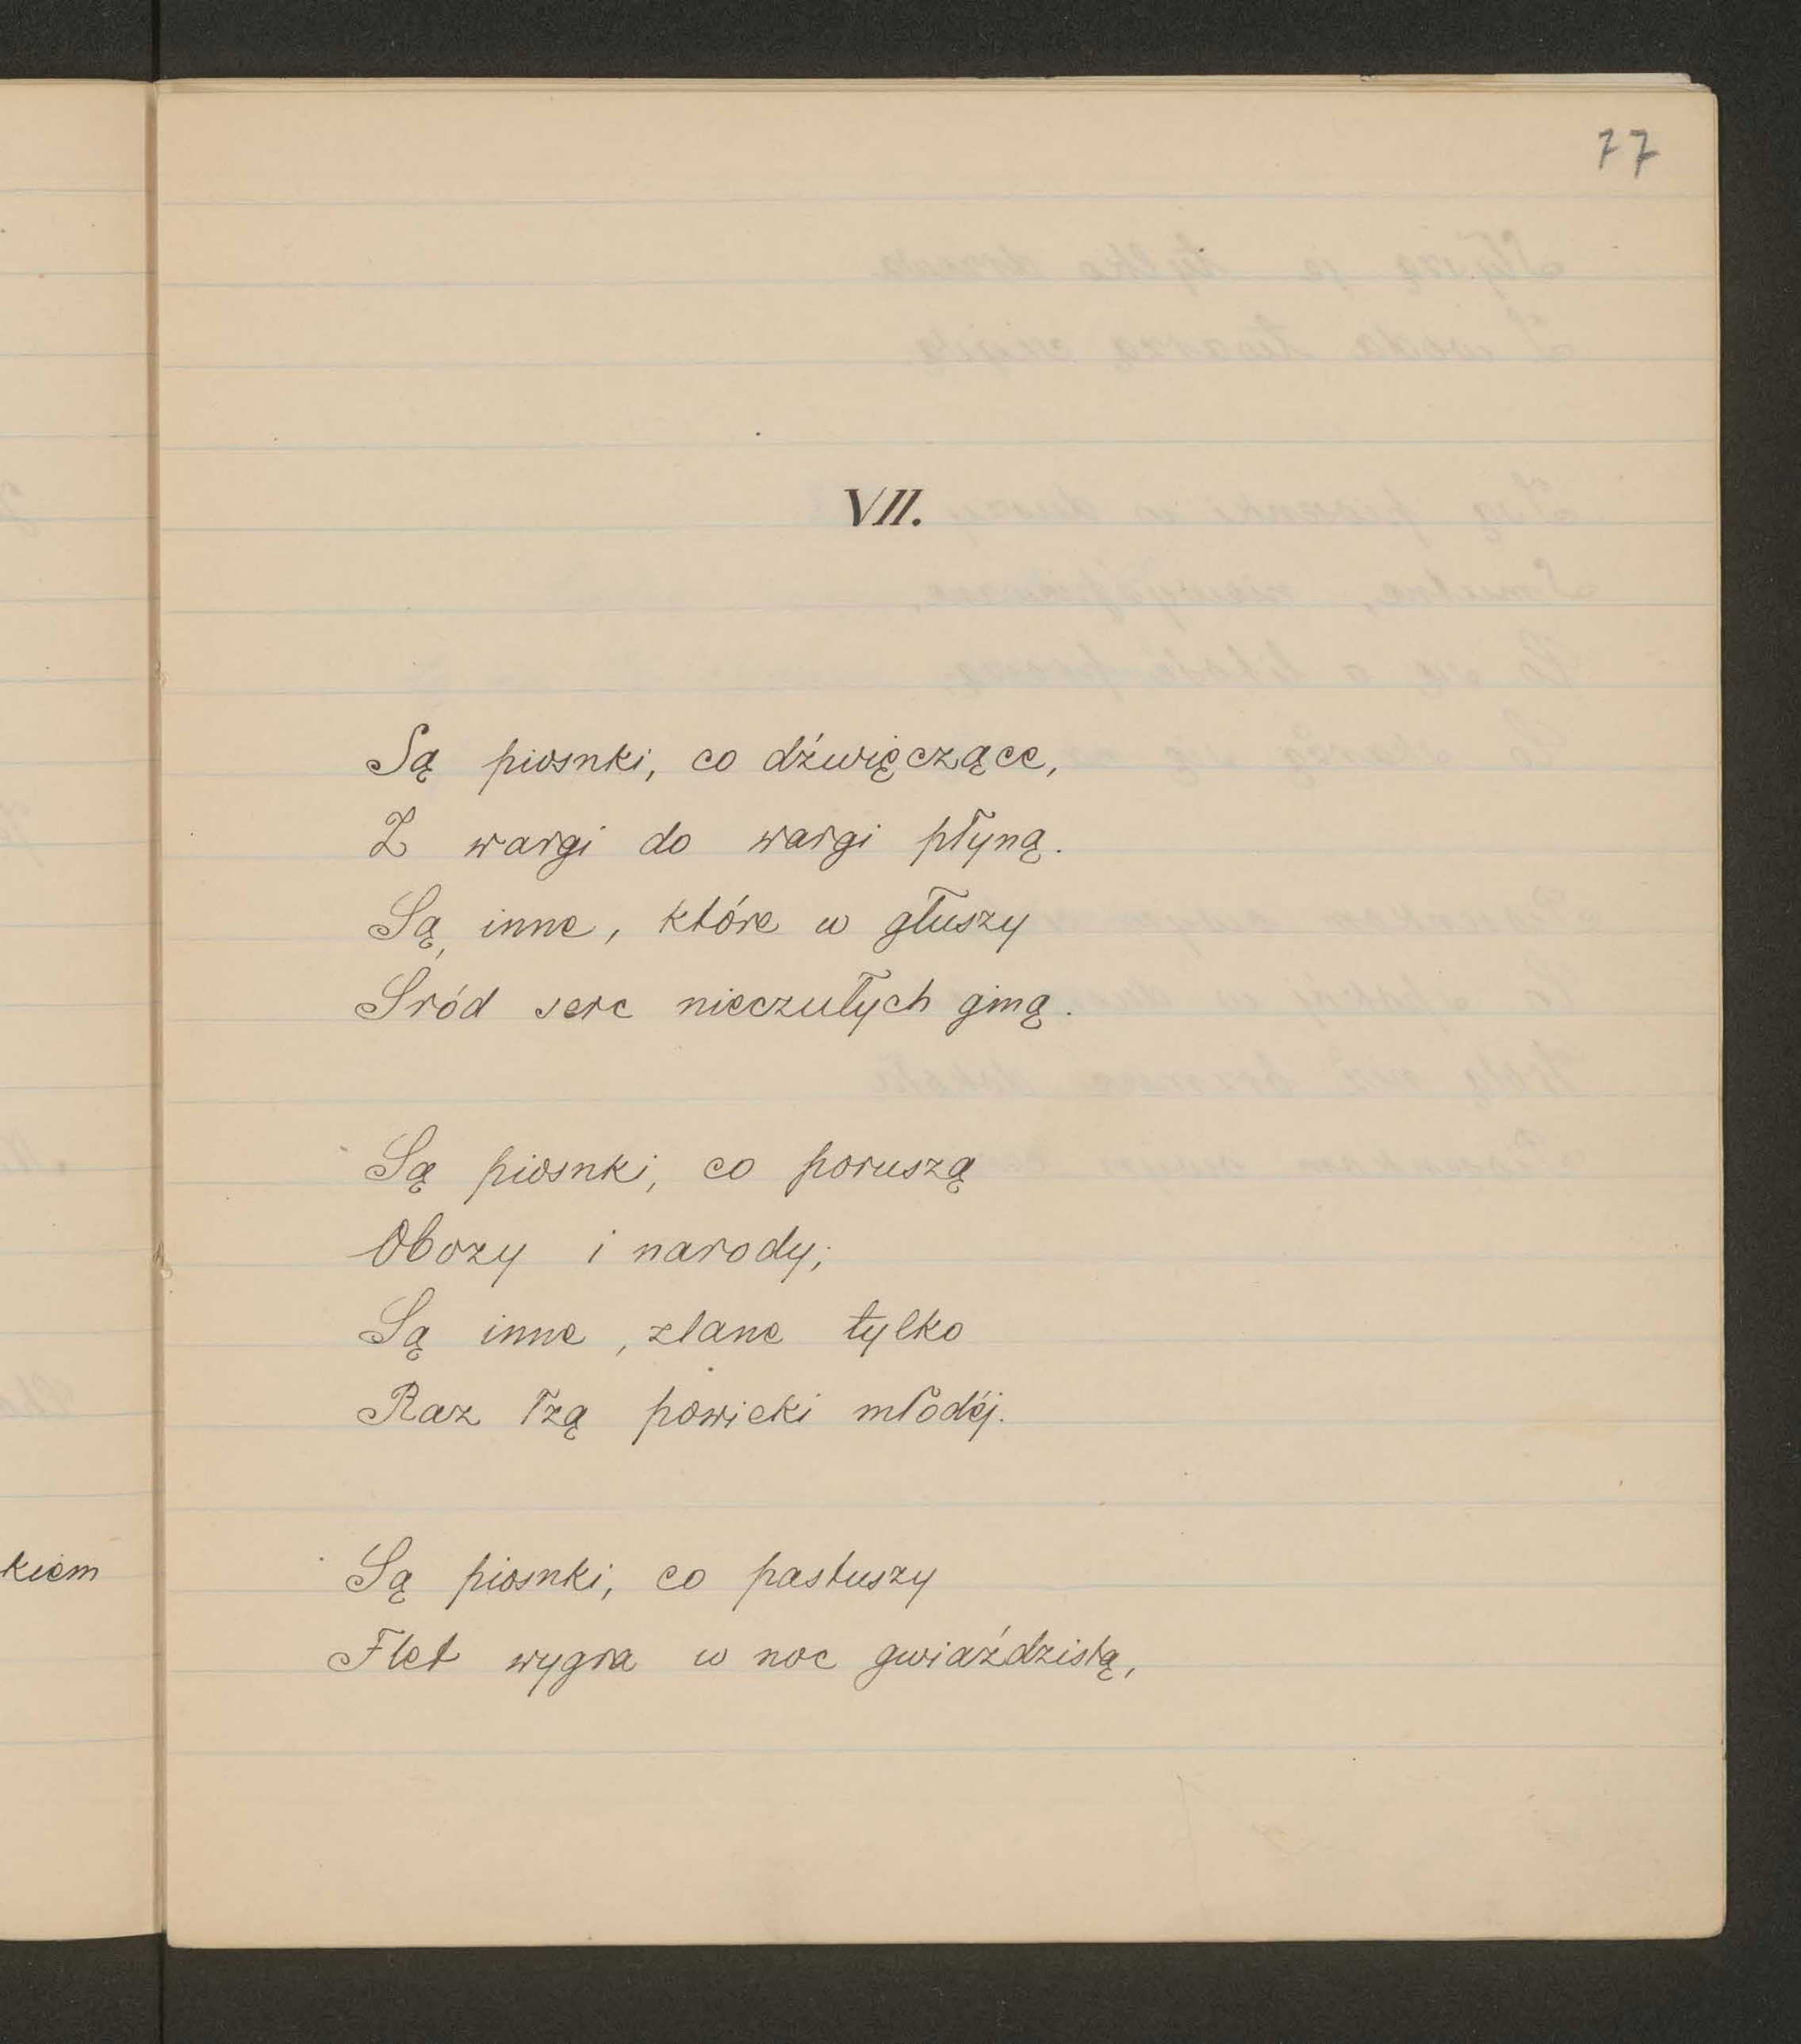 77
VII.
Są piosnki, co dźwięczące,
Z wargi do wargi płyną.
Są inne, które w głuszy
Śród serc nieczułych giną.
Są piosnki, co poruszą
Obozy i narody;
Są inne, zlane tylko
Raz łzą powieki młodéj.
Są piosnki, co pastuszy
kiem
Flet wygra w noc gwiaździstą,